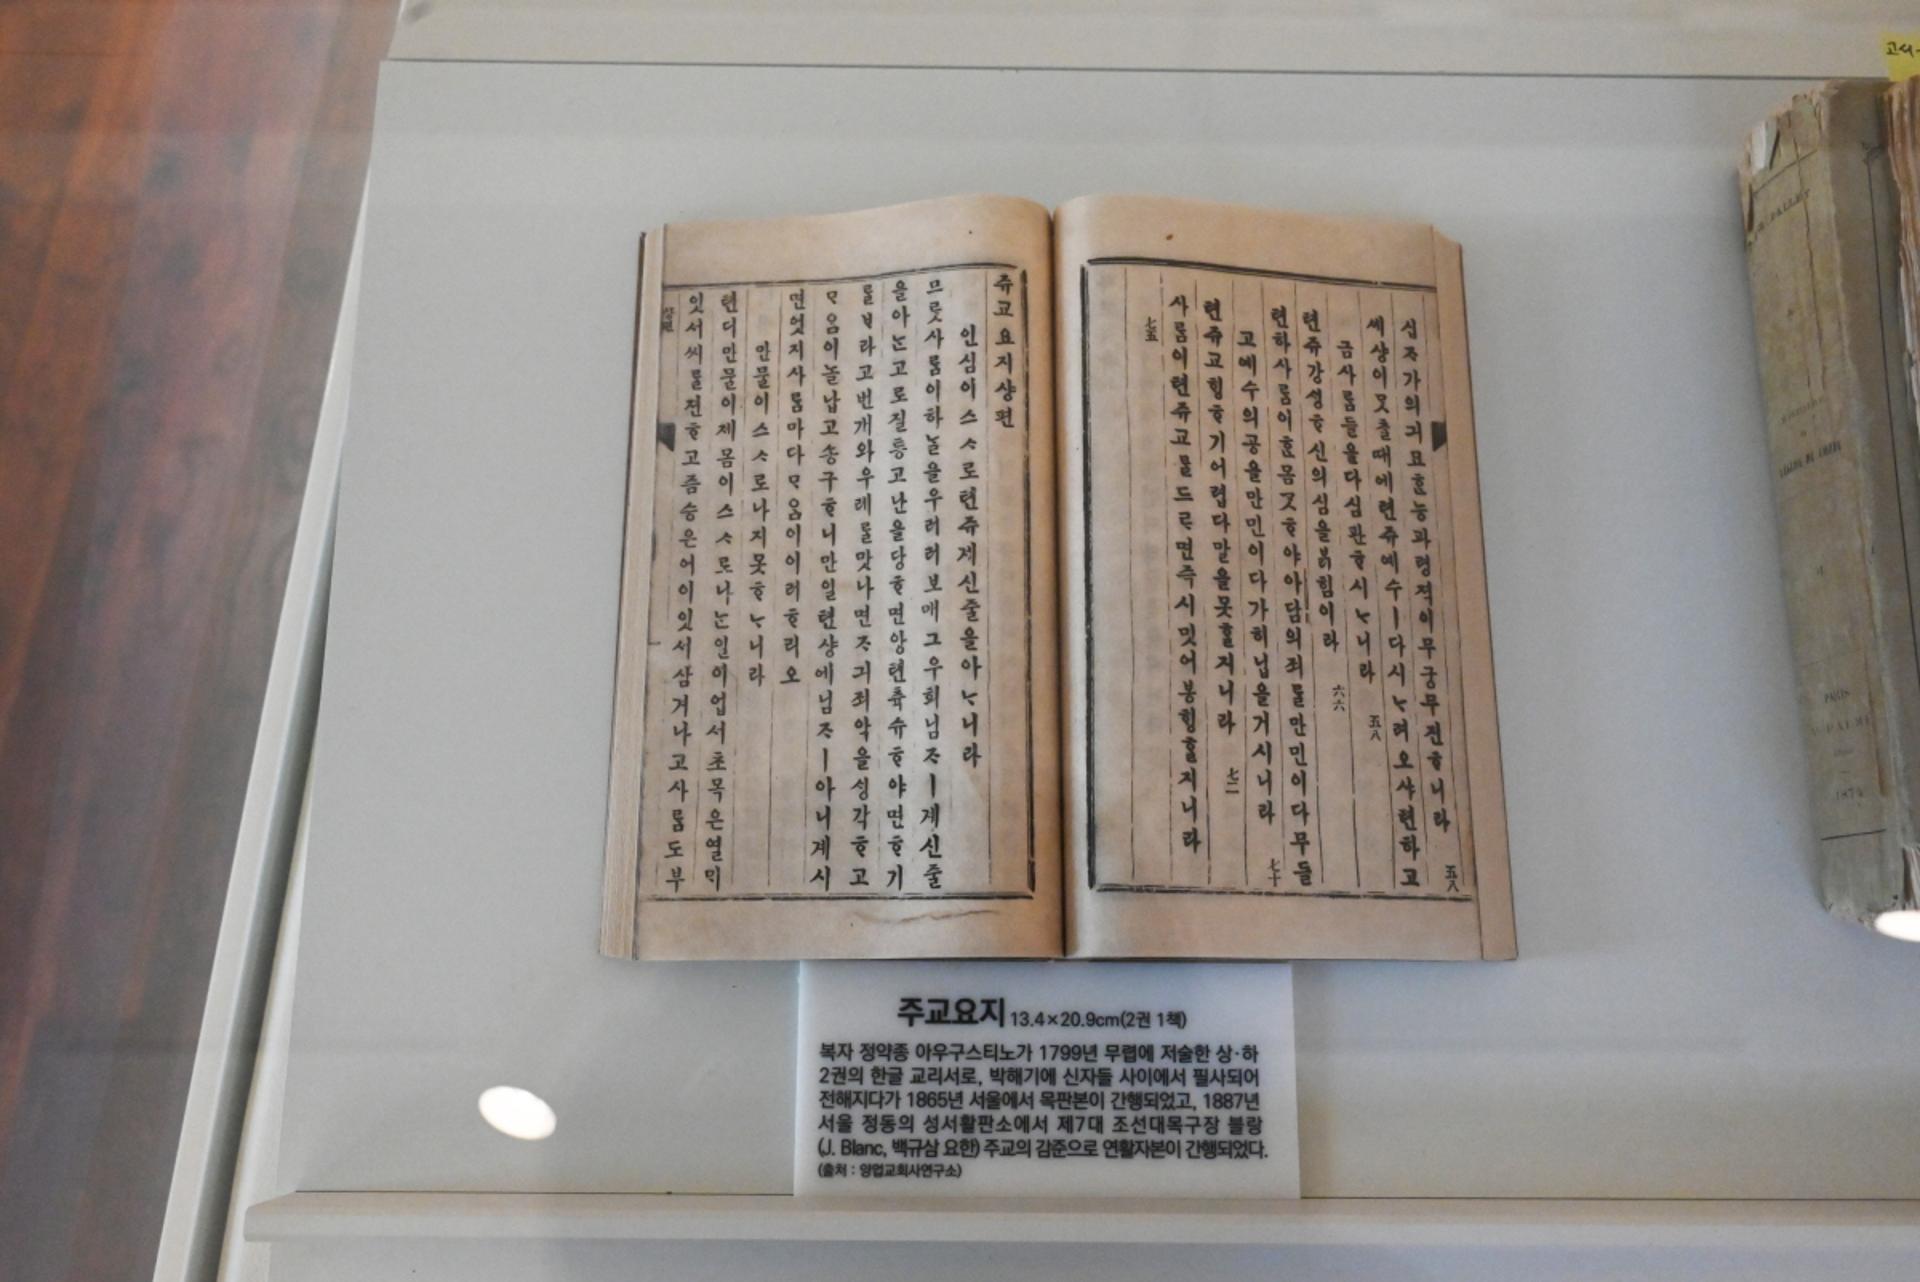 십ᄌᆞ가의긔묘ᄒᆞᆫ능과령젹이무궁무진ᄒᆞ니라 五八
셰샹이ᄆᆞᆺᄎᆞᆯ때에텬쥬예수ㅣ다시ᄂᆞ려오샤텬하고
금사ᄅᆞᆷ들을다심판ᄒᆞ시ᄂᆞ니라 五八
텬쥬강ᄉᆡᆼᄒᆞ신의심을ᄇᆞᆰ힘이라 六六
텬하사ᄅᆞᆷ이ᄒᆞᆫ몸ᄀᆞᆺᄒᆞ야아담의죄ᄅᆞᆯ만민이다무들
고예수의공을만민이다가히닙을거시니라 七十
텬쥬교ᄒᆡᆼᄒᆞ기어렵다말을못ᄒᆞᆯ지니라 七二
사ᄅᆞᆷ이텬쥬교ᄅᆞᆯ드ᄅᆞ면즉시밋어봉ᄒᆡᆼᄒᆞᆯ지니라
七五
쥬교요지샹편
인심이스ᄉᆞ로텬쥬계신줄을아ᄂᆞ니라
므릇사ᄅᆞᆷ이하ᄂᆞᆯ을우러러보매그우희님ᄌᆞㅣ계신줄
을아ᄂᆞᆫ고로질통고난을당ᄒᆞ면앙텬츅슈ᄒᆞ야면ᄒᆞ기
ᄅᆞᆯᄇᆞ라고번개와우레ᄅᆞᆯ맛나면ᄌᆞ긔죄악을ᄉᆡᆼ각ᄒᆞ고
ᄆᆞ음이놀납고송구ᄒᆞ니만일텬샹에님ᄌᆞㅣ아니계시
면엇지사ᄅᆞᆷ마다ᄆᆞ음이이러ᄒᆞ리오
만물이스ᄉᆞ로나지못ᄒᆞᄂᆞ니라
텬디만물이제몸이스ᄉᆞ로나ᄂᆞᆫ일이업서초목은열ᄆᆡ
잇서씨ᄅᆞᆯ젼ᄒᆞ고즘승은어이잇서삼겨나고사ᄅᆞᆷ도부
주교요지 13.4×20.9cm(2권 1책)
복자 정약종 아우구스티노가 1799년 무렵에 저술한 상·하
2권의 한글 교리서로, 박해기에 신자들 사이에서 필사되어
전해지다가 1865년 서울에서 목판본이 간행되었고, 1887년
서울 정동의 성서활판소에서 제7대 조선대목구장 블랑
(J. Blanc, 백규삼 요한) 주교의 감준으로 연활자본이 간행되었다.
(출처 : 양업교회사연구소)
DALLET
PARIS
1874